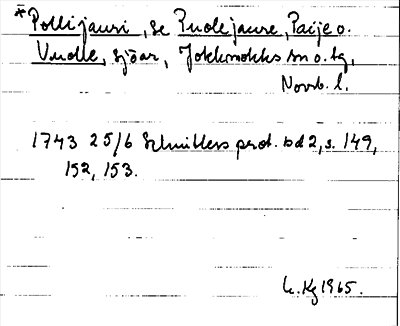 *Polli jauri, se Puolejaure, Paije o.
Vuolle, sjöar, Jokkmokks sn o. tg,
Norrb. l.
1743 25/6 Schnitlers prot. bd 2, s. 149,
152, 153.
h. Kg 1965.